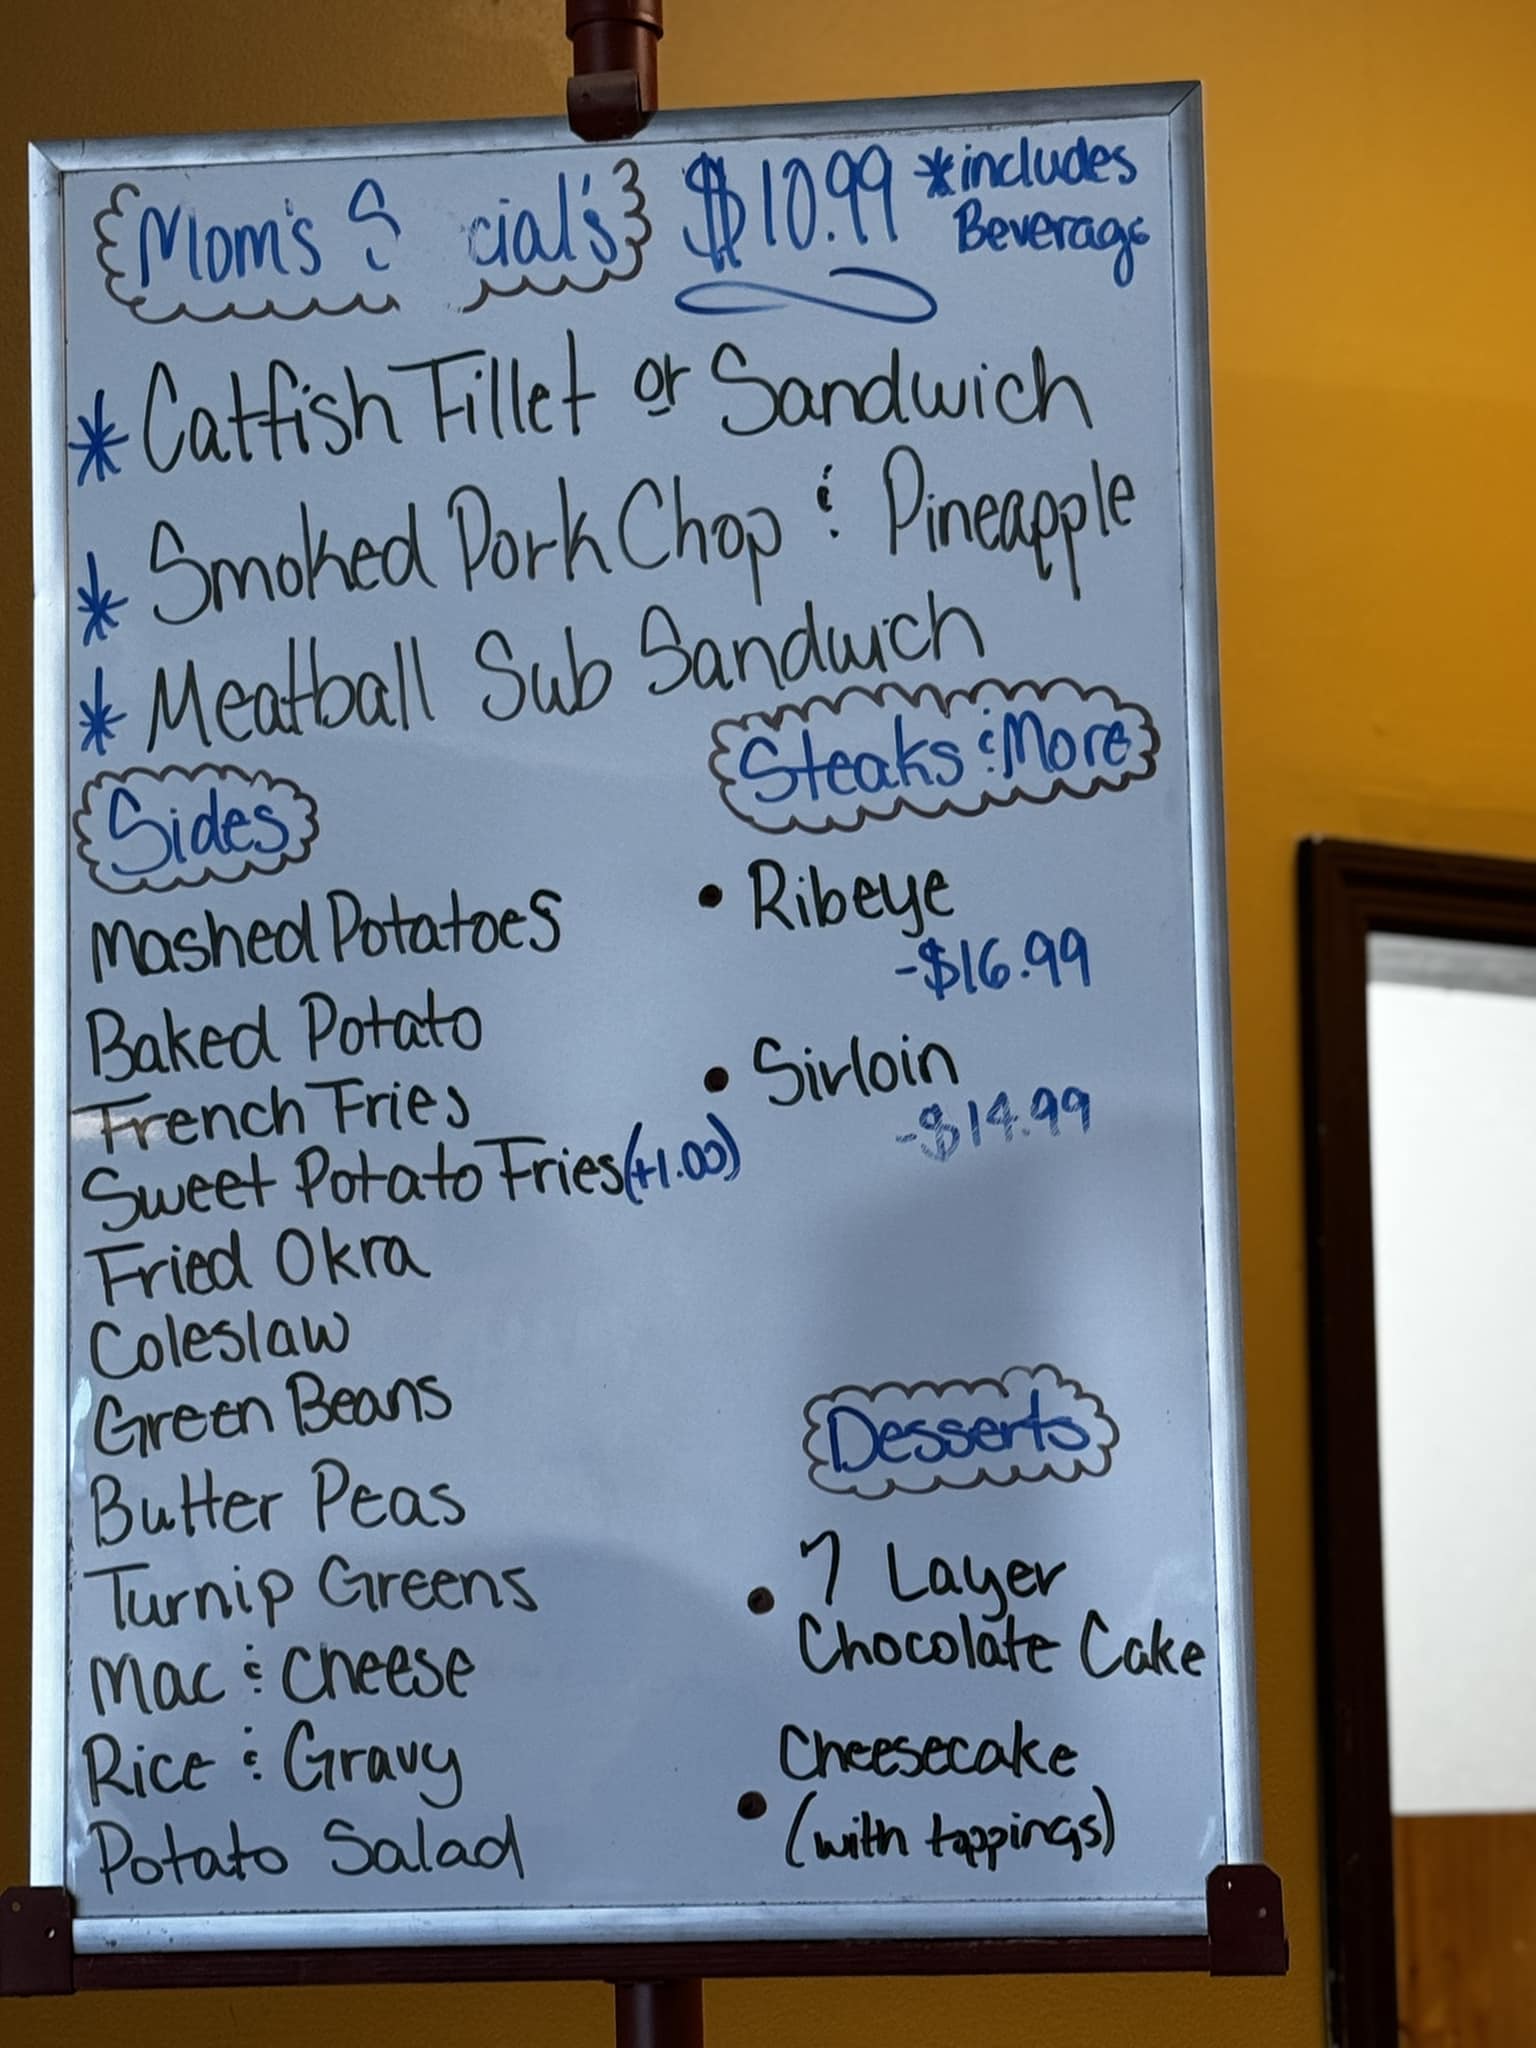 Mom's S cial's $10.99 *includes Beverage
* Catfish Fillet or Sandwich
* Smoked Pork Chop & Pineapple
* Meatball Sub Sandwich
Sides
Mashed Potatoes
Baked Potato
French Fries
Sweet Potato Fries (+1.00)
Fried Okra
Coleslaw
Green Beans
Butter Peas
Turnip Greens
Mac & Cheese
Rice & Gravy
Potato Salad
Steaks & More
• Ribeye
-$16.99
• Sirloin
-$14.99
Desserts
• 7 Layer
Chocolate Cake
Cheesecake
• (with toppings)